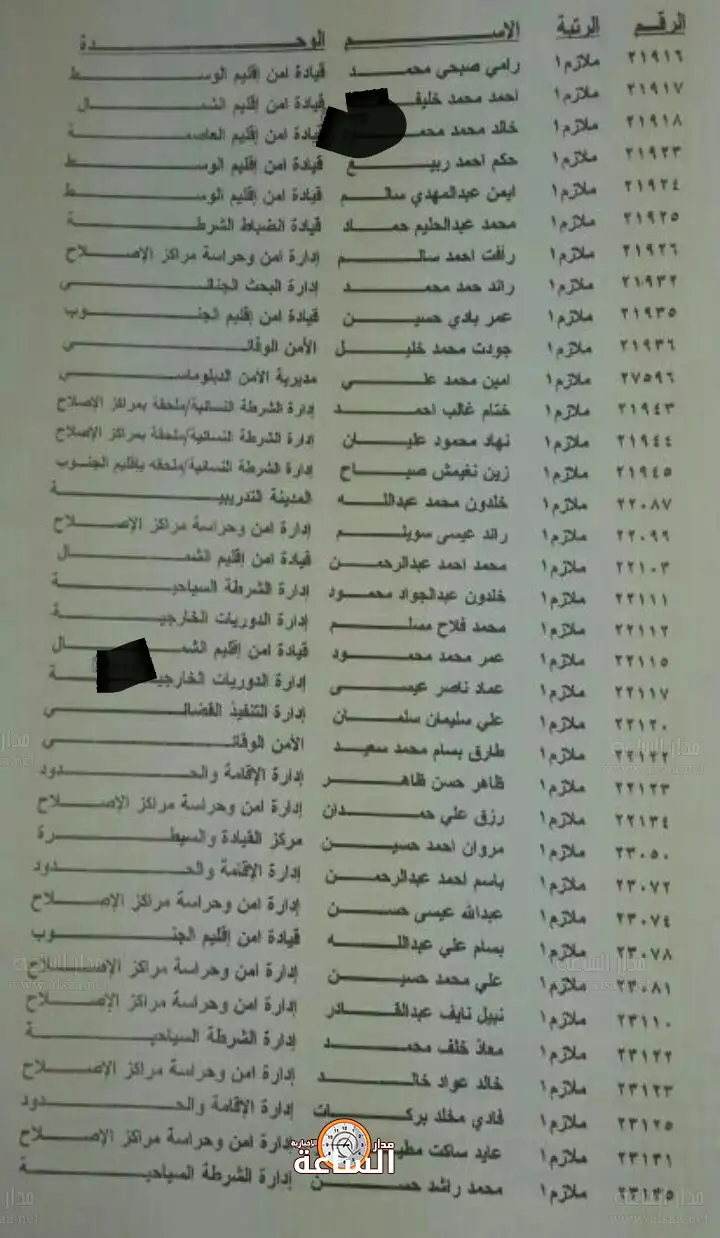 الرقم الرتبة الاسم الوحدة
٢١٩١٦ ملازم١ رامي صبحي محمد قيادة امن إقليم الوسط
٢١٩١٧ ملازم١ احمد محمد خليف قيادة امن إقليم الشمال
٢١٩١٨ ملازم١ خالد محمد محمود قيادة امن إقليم العاصمة
٢١٩٢٣ ملازم١ حكم احمد ربيع قيادة امن إقليم الوسط
٢١٩٢٤ ملازم١ ايمن عبدالمهدي سالم قيادة امن إقليم الوسط
٢١٩٢٥ ملازم١ محمد عبدالحليم حماد قيادة انضباط الشرطة
٢١٩٢٦ ملازم١ رأفت احمد سالم إدارة امن وحراسة مراكز الإصلاح
٢١٩٣٢ ملازم١ رائد حمد محمد إدارة البحث الجنائي
٢١٩٣٥ ملازم١ عمر بادي حسين قيادة امن إقليم الجنوب
٢١٩٣٦ ملازم١ جودت محمد خليل الأمن الوقائي
٢٧٥٩٦ ملازم١ امين محمد علي مديرية الأمن الدبلوماسي
٢١٩٤٣ ملازم١ ختام غالب احمد إدارة الشرطة النسائية/ملحقة بمراكز الإصلاح
٢١٩٤٤ ملازم١ نهاد محمود عليان إدارة الشرطة النسائية/ملحقة بمراكز الإصلاح
٢١٩٤٥ ملازم١ زين نغيمش صباح إدارة الشرطة النسائية/ملحقه بإقليم الجنوب
٢٢٠٨٧ ملازم١ خلدون محمد عبدالله المدينة التدريبية
٢٢٠٩٩ ملازم١ رائد عيسى سويلم إدارة امن وحراسة مراكز الإصلاح
٢٢١٠٣ ملازم١ محمد احمد عبدالرحمن قيادة امن إقليم الشمال
٢٢١١١ ملازم١ خلدون عبدالجواد محمود إدارة الشرطة السياحية
٢٢١١٢ ملازم١ محمد فلاح مسلم إدارة الدوريات الخارجية
٢٢١١٥ ملازم١ عمر محمد محمود قيادة امن إقليم الشمال
٢٢١١٧ ملازم١ عماد ناصر عيسى إدارة الدوريات الخارجية
٢٢١٢٠ ملازم١ علي سليمان سلمان إدارة التنفيذ القضائي
٢٢١٢٢ ملازم١ طارق بسام محمد سعيد الأمن الوقائي
٢٢١٢٣ ملازم١ ظاهر حسن ظاهر إدارة الإقامة والحدود
٢٢١٣٤ ملازم١ رزق علي حمدان إدارة امن وحراسة مراكز الإصلاح
٢٣٠٥٠ ملازم١ مروان احمد حسين مركز القيادة والسيطرة
٢٣٠٧٢ ملازم١ باسم احمد عبدالرحمن إدارة الإقامة والحدود
٢٣٠٧٤ ملازم١ عبدالله عيسى حسن إدارة امن وحراسة مراكز الإصلاح
٢٣٠٧٨ ملازم١ بسام علي عبدالله قيادة امن إقليم الجنوب
٢٣٠٨١ ملازم١ علي محمد حسين إدارة امن وحراسة مراكز الإصلاح
٢٣١١٠ ملازم١ نبيل نايف عبدالقادر إدارة امن وحراسة مراكز الإصلاح
٢٣١٢٢ ملازم١ معاذ خلف محمد إدارة الشرطة السياحية
٢٣١٢٣ ملازم١ خالد عواد خالد إدارة امن وحراسة مراكز الإصلاح
٢٣١٢٥ ملازم١ فادي مخلد بركات إدارة الإقامة والحدود
٢٣١٣١ ملازم١ عايد ساكت إدارة امن وحراسة مراكز الإصلاح
٢٣١٣٥ ملازم١ محمد راشد حسن إدارة الشرطة السياحية
مدار الساعة الاخبارية